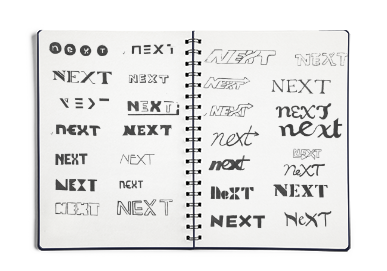 NEXT nEXT
NEXT NEXT
NEXT NEXT
NEXT NEXT
NEXT NEXT
NEXT NEXT
NEXT NEXT
NEXT NEXT
NEXT NEXT
NEXT nEXT
next next
next NEXT
NeXT
neXT NEXT
NEXT NeXT